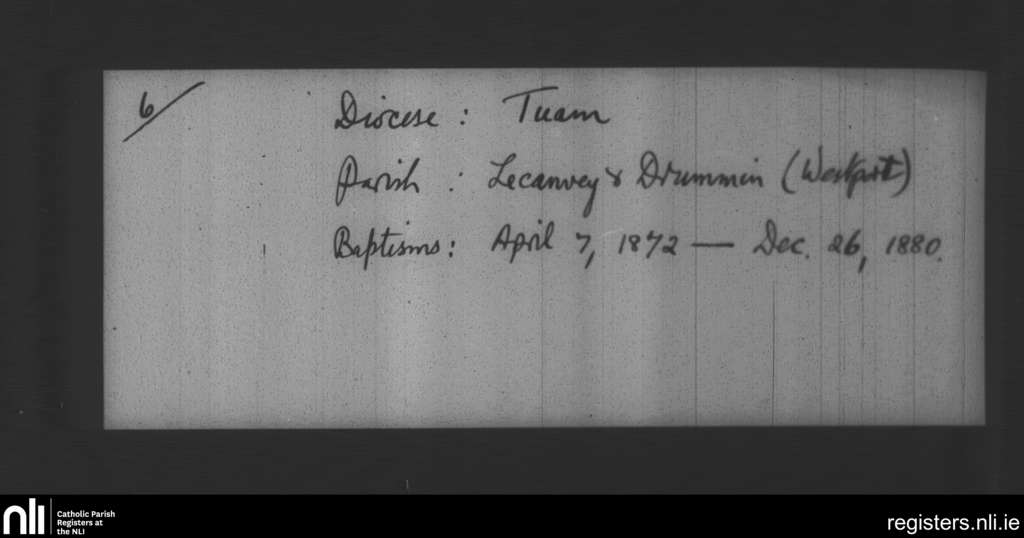 6/
Diocese : Tuam
Parish : Lecanvey & Drummin (Westport)
Baptisms: April 7, 1872 — Dec. 26, 1880.
nli
Catholic Parish
Registers at
the NLI
registers.nli.ie